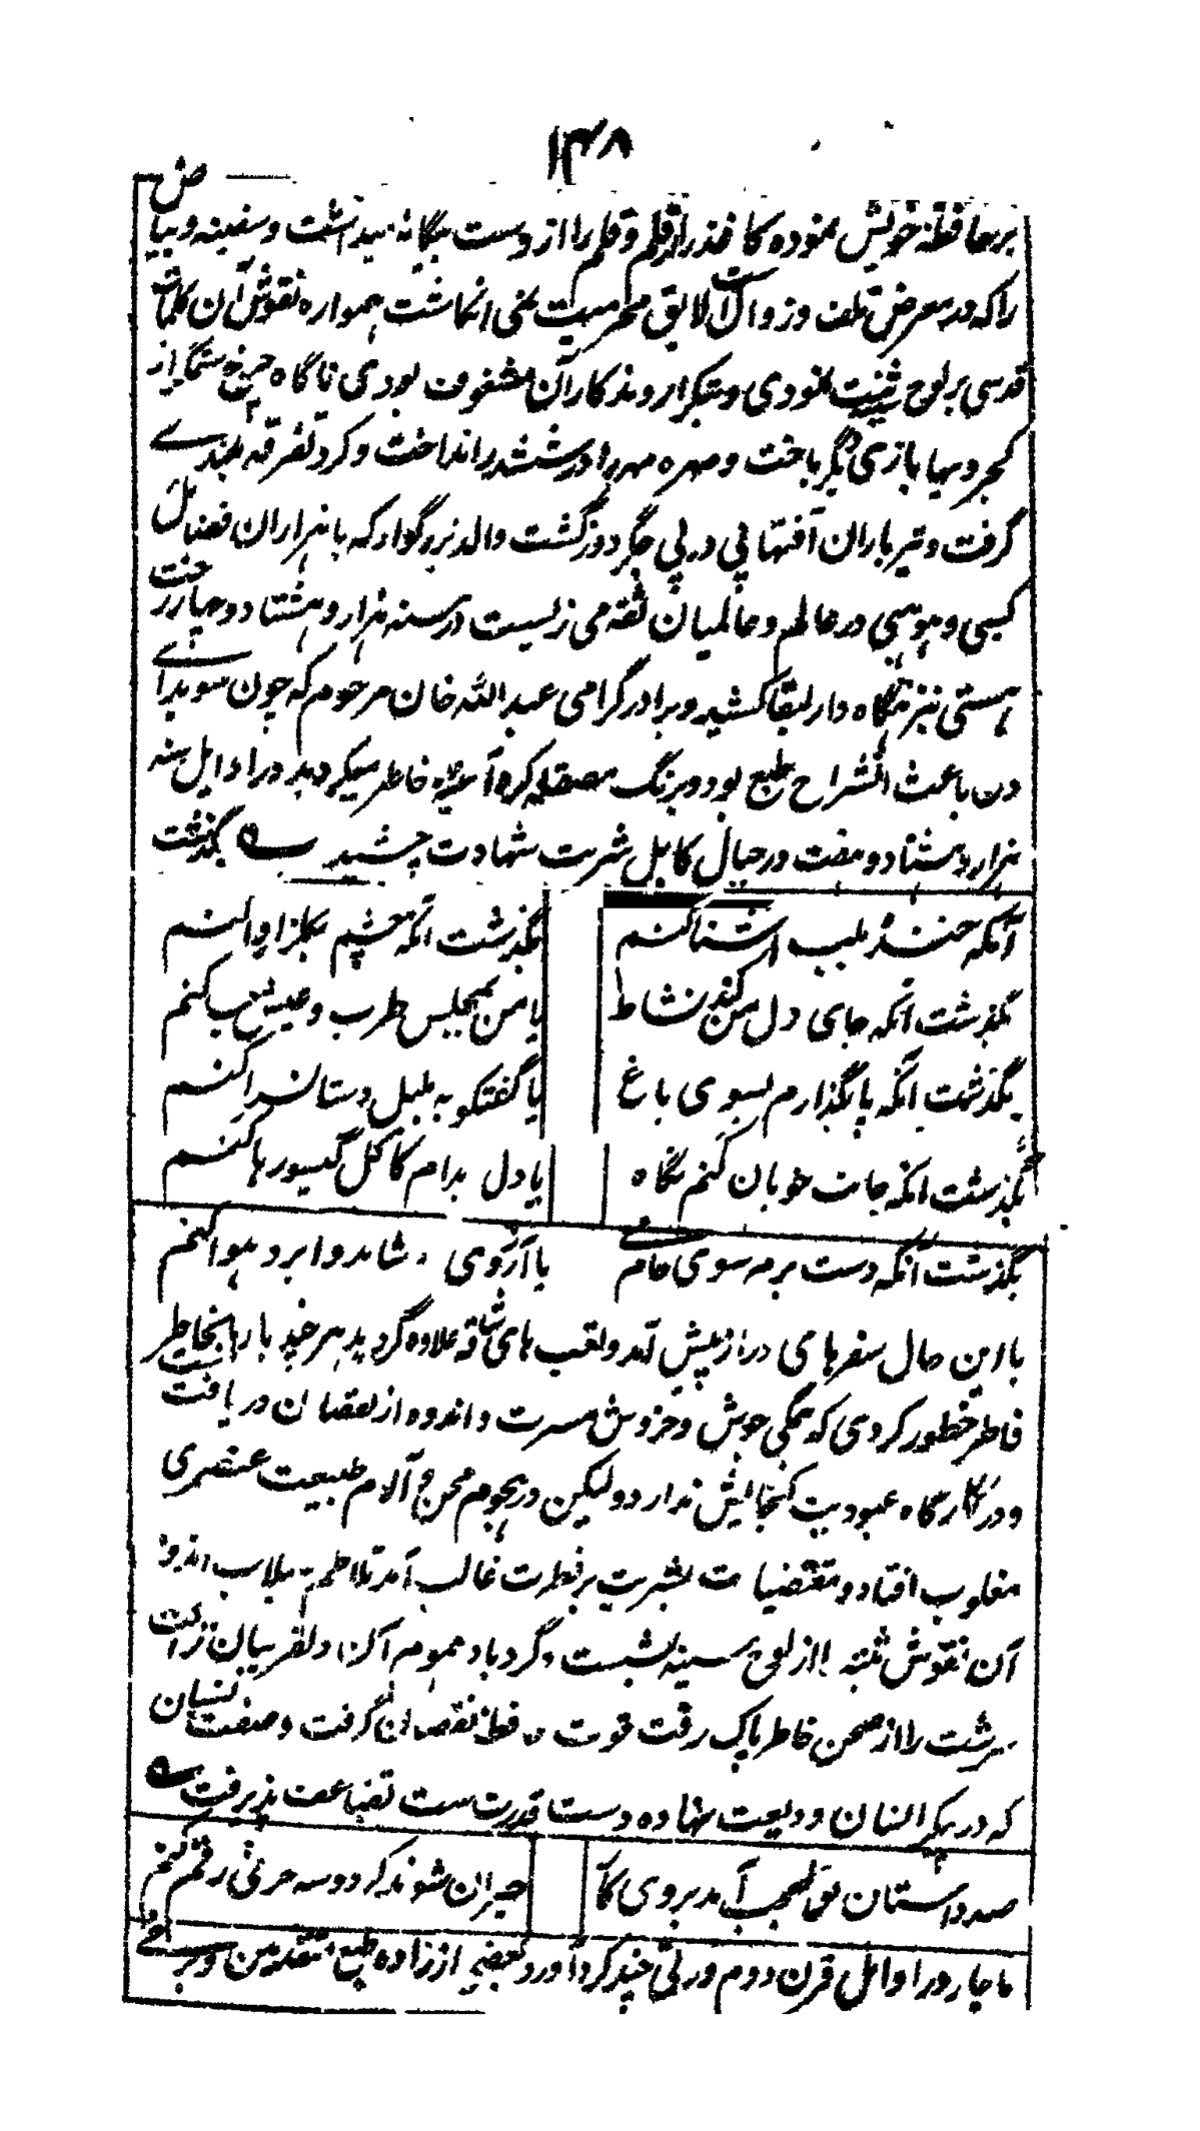 ۱۳۸
بر حافظهٔ خویش نموده کاغذ را از قلم و قلم را از دست بیگانه میداشت و سفینه و بیاض
را که در معرض تلف و زوال است لایق محرمیت نمی انگاشت همواره نقوش آن کلمات
قدسی بر لوح نمودی و بتکرار و تذکار آن مشغوف بودی ناگاه چرخ ستمگر از
کجروی‌ها بازی دیگر باخت و مهره مهر را در ششدر انداخت و گرد تفرقه بلندی
گرفت و تیر باران آفتها پی در پی جگر دوز گشت والد بزرگوار که با هزاران فضایل
کسبی و موهبی در عالم و عالمیان ثقه می زیست در سنه هزار و هشتاد و چهار رخت
هستی بنزهتگاه دار البقا کشید و برادر گرامی عبدالله خان مرحوم که چون سویدای
دل باعث انشراح طبع بود و برنگ مصقله خاطر میگردید در اوایل سنه
هزار و هشتاد و هفت در جبال کابل شربت شهادت چشید بگذشت
آنکه خنده بلب آشنا کنم
بگذشت آنکه چشم بگلزار وا کنم
بگذشت آنکه جای دل من کند نشاط
یا من بمجلس طرب و عیش جا کنم
بگذشت آنکه پا بگذارم بسوی باغ
یا گفتگو به بلبل دستانسرا کنم
بگذشت آنکه جانب خوبان کنم نگاه
یا دل بدام کاکل گیسو رها کنم
بگذشت آنکه دست برم سوی جامِ می
یا آرزوی شاهد و ابر و هوا کنم
با این حال سفرهای دراز پیش آمد و تعب های شاقه علاوه گردید هر چند بارها بخاطر
فاطر خطور کردی که همگی جوش و خروش مسرت و اندوه از نقصان دریافت است
و در کارگاه عبودیت گنجایش ندارد و لیکن در هجوم محن و آلام طبیعت عنصری
مغلوب افتاد و مقتضیات بشریت بر فطرت غالب آمد تلاطم سیلاب اندوه
آن نقوش مثبته را از لوح سینه بشست و گردباد هموم آن دلفریبان نزاهت
سرشت را از صحن خاطر پاک رفت قوت حافظه نقصان گرفت و صفت نسیان
که در پیکر انسان ودیعت نهاده دست قدرت ست تضاعف پذیرفت
صد داستان آمد بروی کار
حیران شوند گر دو سه حرفی رقم کنم
ناچار در اوایل قرن دوم ورقی چند گرد آورد و بعضی از زاده طبع متقدمین و برخی